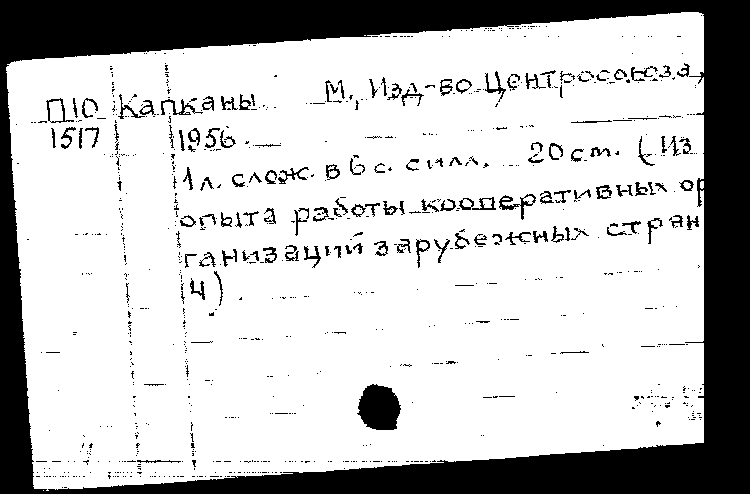 П10 Капканы М., Изд-во Центросоюза,
1517 1956.
1 л. слож. в 6 с. с илл. 20 см. (Из
опыта работы кооперативных ор
ганизаций зарубежных стран
4).